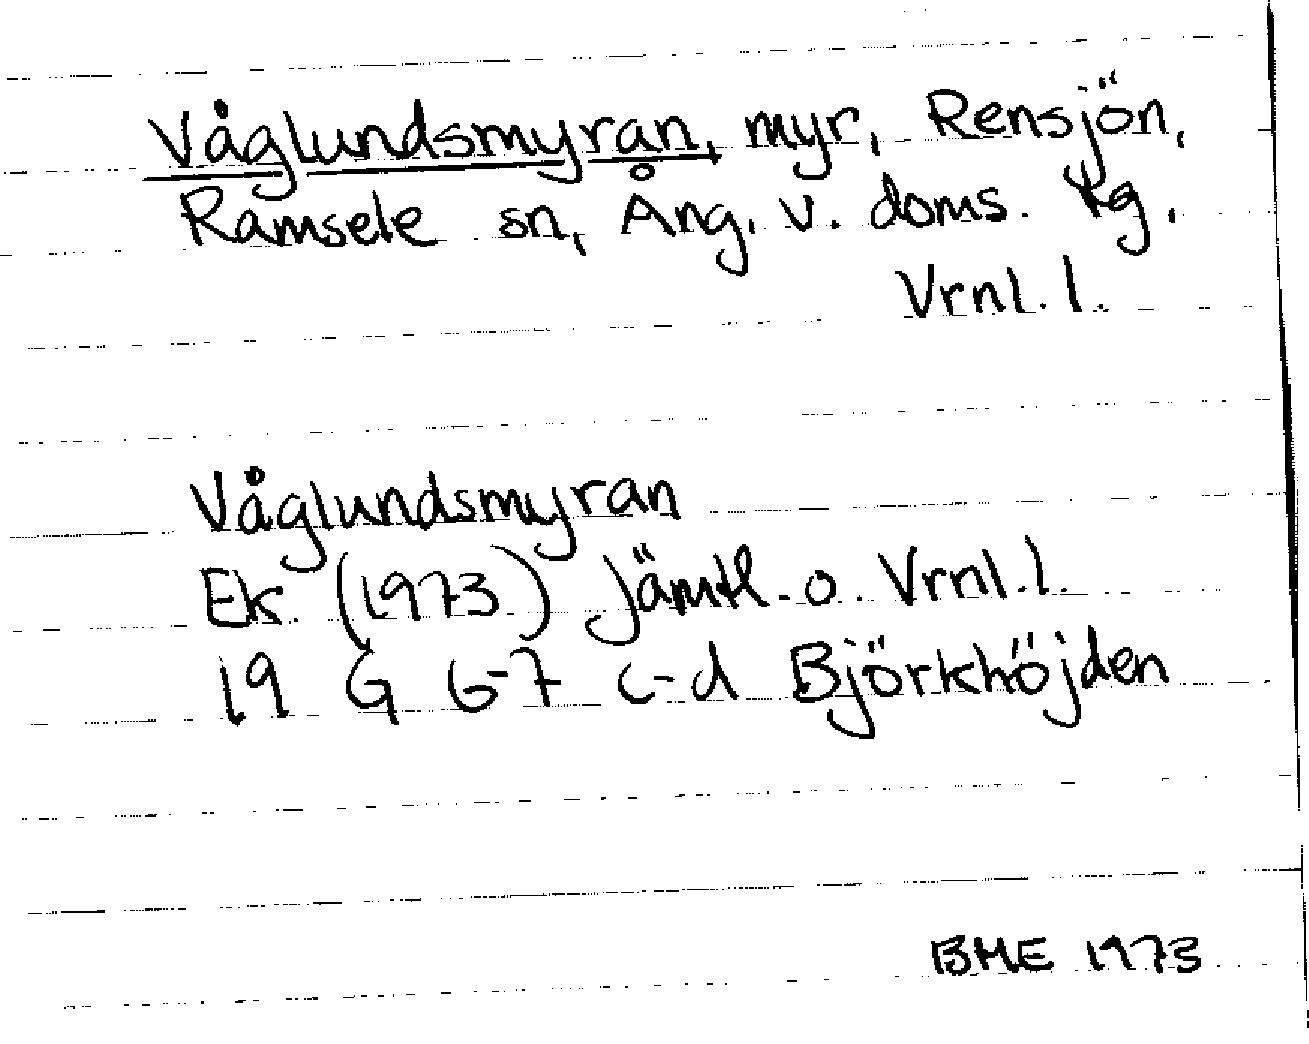 Våglundsmyran, myr, Rensjön,
Ramsele sn, Ång. v. doms. tg,
Vrnl. l.
Våglundsmyran
Ek (1973) Jämtl. o. Vrnl. l.
19 G 6-7 c-d Björkhöjden
BME 1973